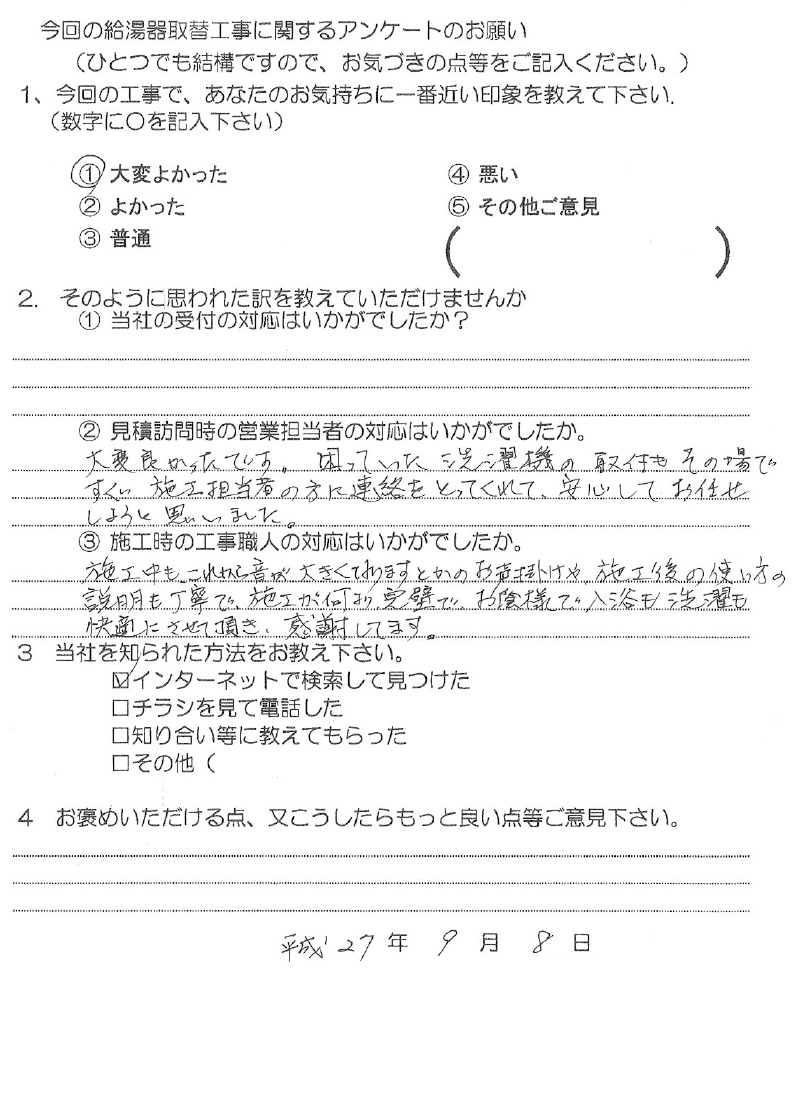 今回の給湯器取替工事に関するアンケートのお願い
（ひとつでも結構ですので、お気づきの点等をご記入ください。）
1、今回の工事で、あなたのお気持ちに一番近い印象を教えて下さい.
（数字に〇を記入下さい）
① 大変よかった ④ 悪い
② よかった ⑤ その他ご意見
③ 普通 ( )
2. そのように思われた訳を教えていただけませんか
① 当社の受付の対応はいかがでしたか？
② 見積訪問時の営業担当者の対応はいかがでしたか。
大変良かったです。困っていた洗濯機の取付もその場で
すぐに施工担当者の方に連絡をとってくれて、安心してお任せ
しようと思いました。
③ 施工時の工事職人の対応はいかがでしたか。
施工中も、これから音が大きくでますとかのお声掛けや、施工後の使い方の
説明も丁寧で、施工が何より完璧で、お陰様で入浴も洗濯も
快適にさせて頂き、感謝してます。
3 当社を知られた方法をお教え下さい。
☑インターネットで検索して見つけた
□チラシを見て電話した
□知り合い等に教えてもらった
□その他（
4 お褒めいただける点、又こうしたらもっと良い点等ご意見下さい。
平成 27 年 9 月 8 日